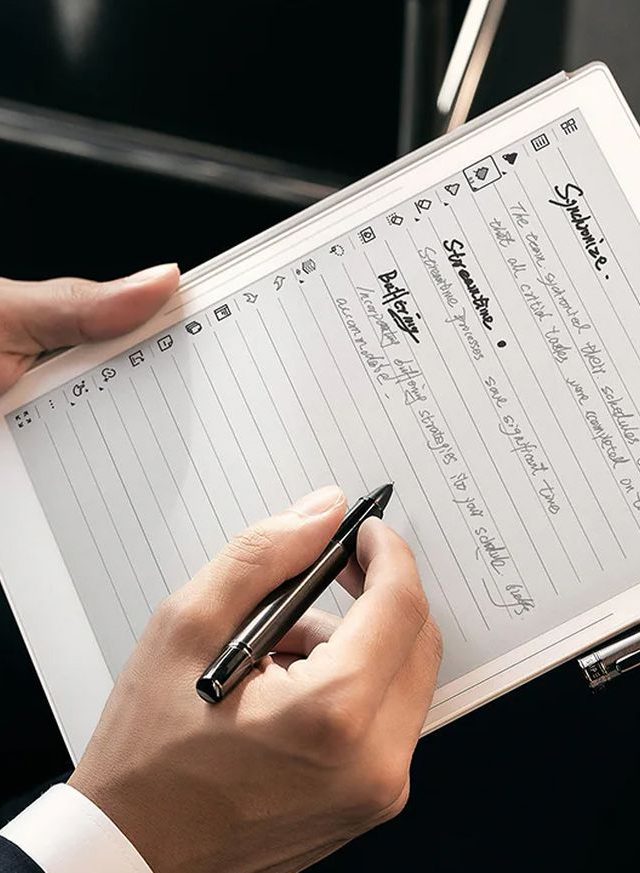 Synchronize.
The team sychronized their schedules
that all critical tasks were completed on
Streamtime.
Streamtime processes save significant time
Buffering
Incorporating buffering strategies ito your schedule helps
accommodate.